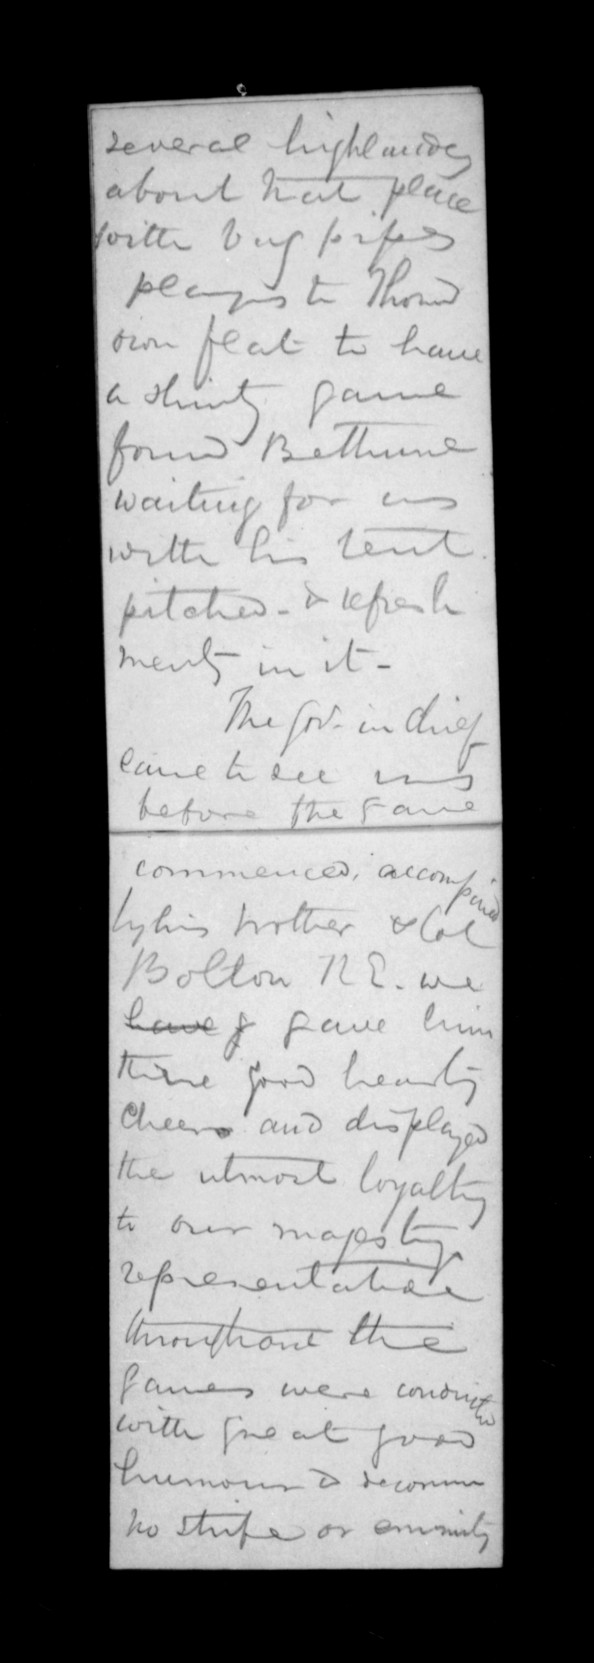 several highlanders
about that place
with bag pipes
playing to Thornd
ron flat to have
a shinty game
found Bethune
waiting for us
with his tent
pitched - & refresh
ments in it -
The Gov. in chief
came to see us
before the game
commenced, accompined
by his brother & Col
Bolton R E. we
have g gave him
three good hearty
Cheers and displayed
the utmost loyalty
to our majesty
representative
throughout the
games were conducted
with great good
humour & decorum
no strife or enmity